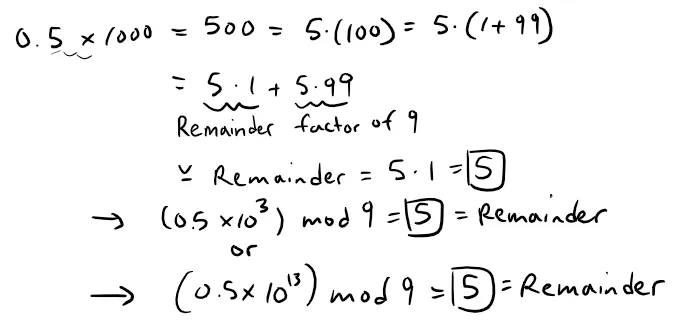 0.5 × 1000 = 500 = 5·(100) = 5·(1+99)
= 5·1 + 5·99
Remainder factor of 9
⩣ Remainder = 5·1 = 5
→ (0.5 × 10³) mod 9 = 5 = Remainder
or
→ (0.5 × 10¹³) mod 9 = 5 = Remainder